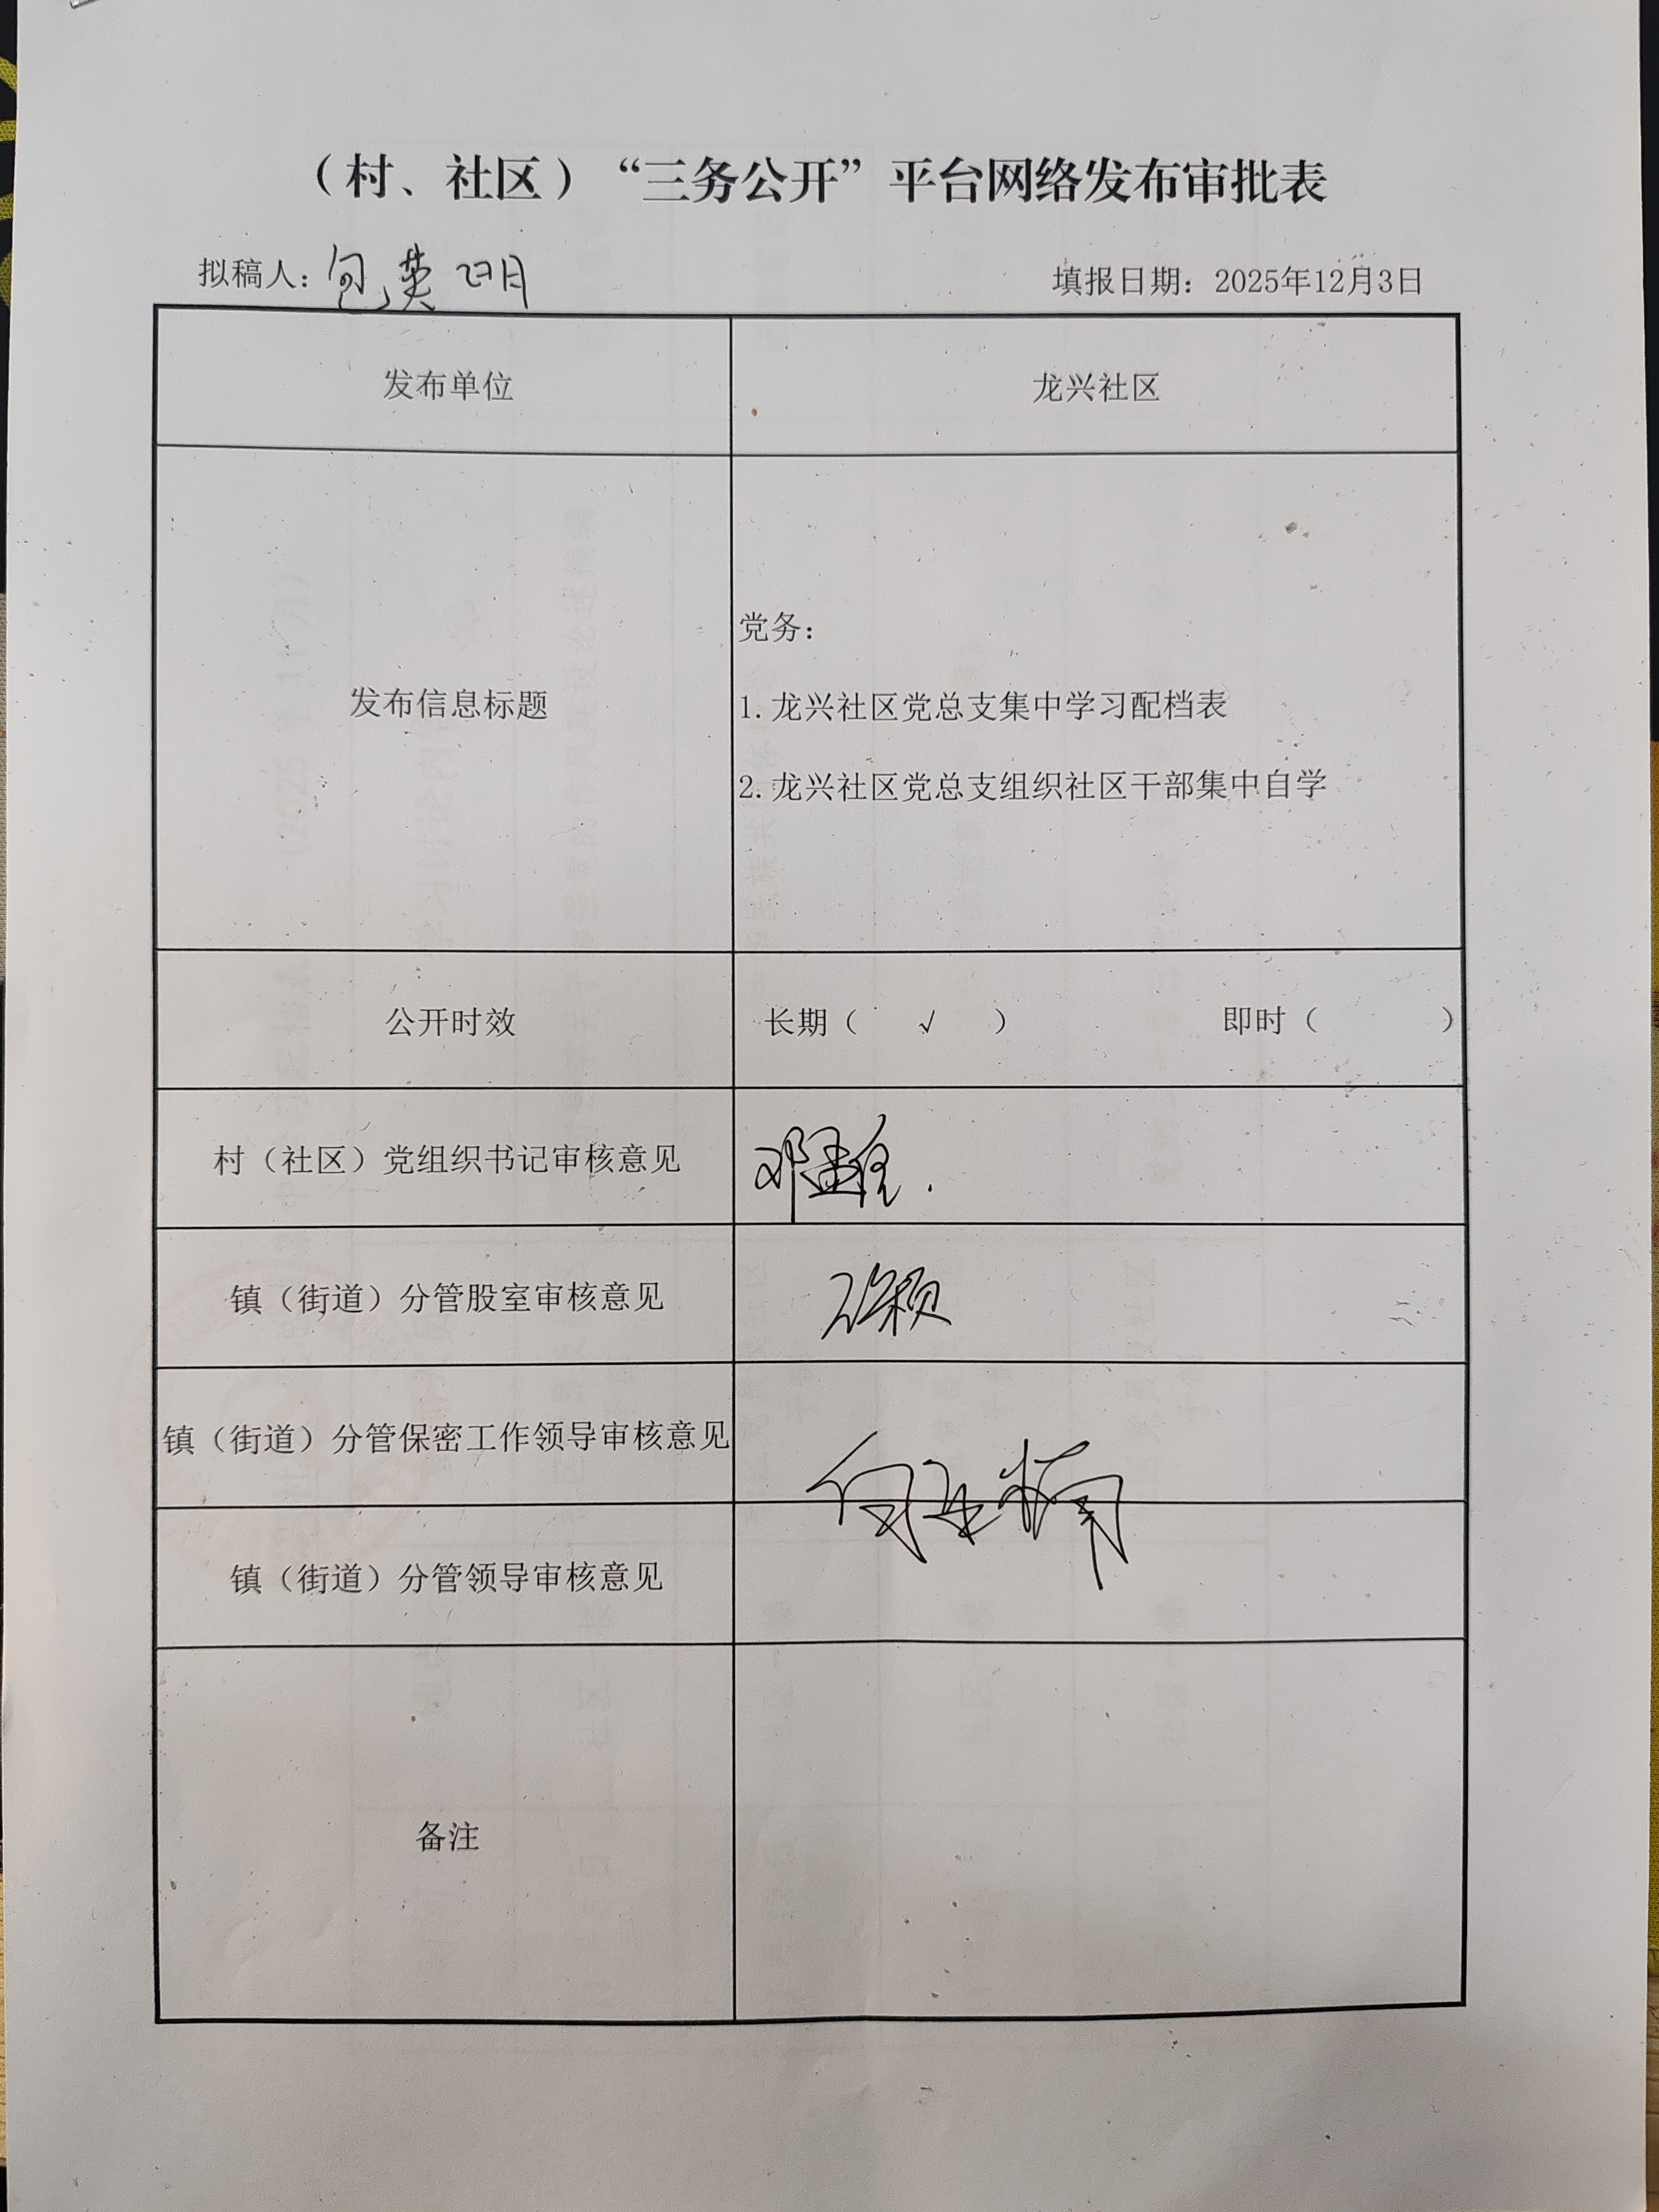 （村、社区）“三务公开”平台网络发布审批表
拟稿人：包英明 填报日期：2025年12月3日
发布单位 龙兴社区
发布信息标题
党务：
1.龙兴社区党总支集中学习配档表
2.龙兴社区党总支组织社区干部集中自学
公开时效 长期（ √ ） 即时（ ）
村（社区）党组织书记审核意见
镇（街道）分管股室审核意见
镇（街道）分管保密工作领导审核意见
镇（街道）分管领导审核意见
备注